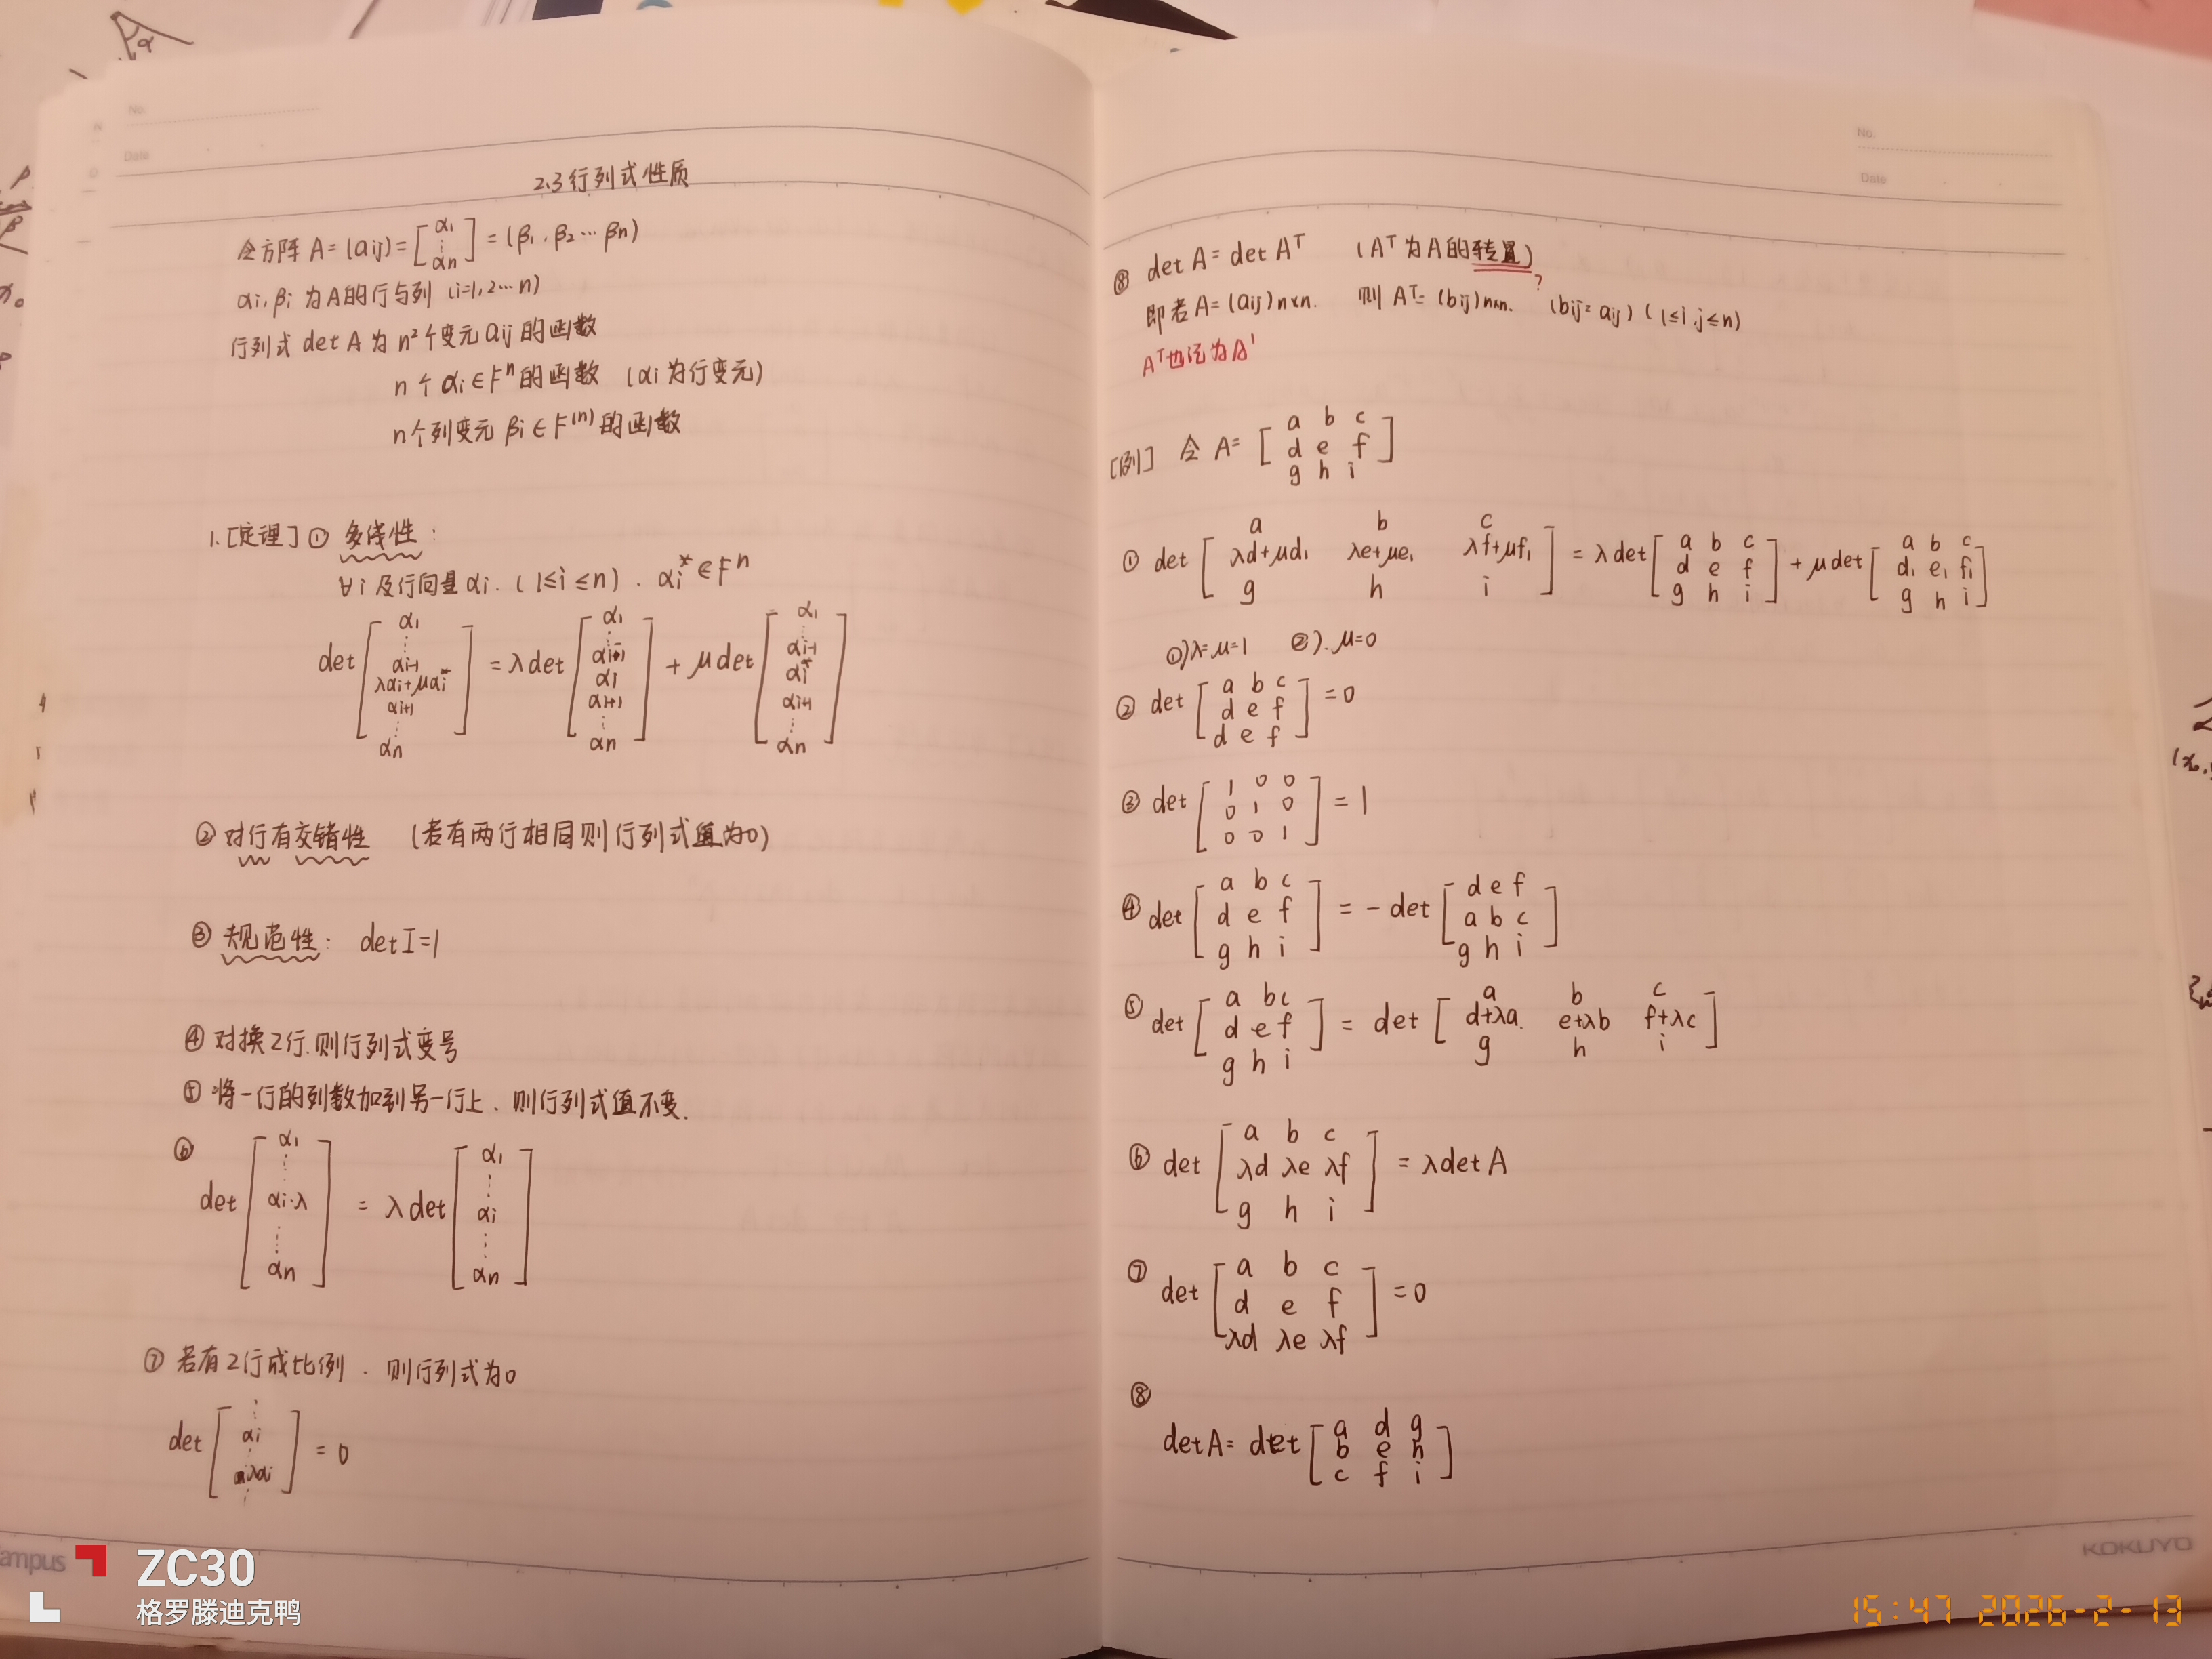 No.
Date
2.3 行列式性质
令方阵 A = (aij) = [α₁ ⋮ αn] = (β₁, β₂ … βn)
αi, βi 为A的行与列 (i=1,2…n)
行列式 det A 为 n² 个变元 aij 的函数
n 个 αi ∈ Fⁿ 的函数 (αi 为行变元)
n 个列变元 βi ∈ F⁽ⁿ⁾ 的函数
1. [定理] ① 多线性:
∀ i 及行向量 αi. (1≤i≤n). αi* ∈ Fⁿ
det [α₁ ⋮ αi-1 λαi+μαi* αi+1 ⋮ αn] = λ det [α₁ ⋮ αi-1 αi αi+1 ⋮ αn] + μ det [α₁ ⋮ αi-1 αi* αi+1 ⋮ αn]
② 对行有交错性 (若有两行相同则行列式值为0)
③ 规范性: det I = 1
④ 对换2行.则行列式变号
⑤ 将一行的列数加到另一行上. 则行列式值不变.
⑥
det [α₁ ⋮ αi·λ ⋮ αn] = λ det [α₁ ⋮ αi ⋮ αn]
⑦ 若有2行成比例. 则行列式为0
det [⋮ αi ⋮ λαi ⋮] = 0
Campus
No.
Date
⑧ det A = det Aᵀ (Aᵀ 为 A 的转置)
?
即若 A = (aij)n×n. 则 Aᵀ = (bij)n×n. (bij = aij) (1≤i,j≤n)
Aᵀ也记为A'
[例] 令 A = [
a b c
d e f
g h i
]
① det [
a b c
λd+μd₁ λe+μe₁ λf+μf₁
g h i
] = λ det [
a b c
d e f
g h i
] + μ det [
a b c
d₁ e₁ f₁
g h i
]
①) λ=μ=1 ②). μ=0
② det [
a b c
d e f
d e f
] = 0
③ det [
1 0 0
0 1 0
0 0 1
] = 1
④ det [
a b c
d e f
g h i
] = - det [
d e f
a b c
g h i
]
⑤ det [
a b c
d e f
g h i
] = det [
a b c
d+λa. e+λb f+λc
g h i
]
⑥ det [
a b c
λd λe λf
g h i
] = λ det A
⑦ det [
a b c
d e f
λd λe λf
] = 0
⑧
det A = det [
a d g
b e h
c f i
]
KOKUYO
ZC30
格罗滕迪克鸭
15:47 2026-2-13